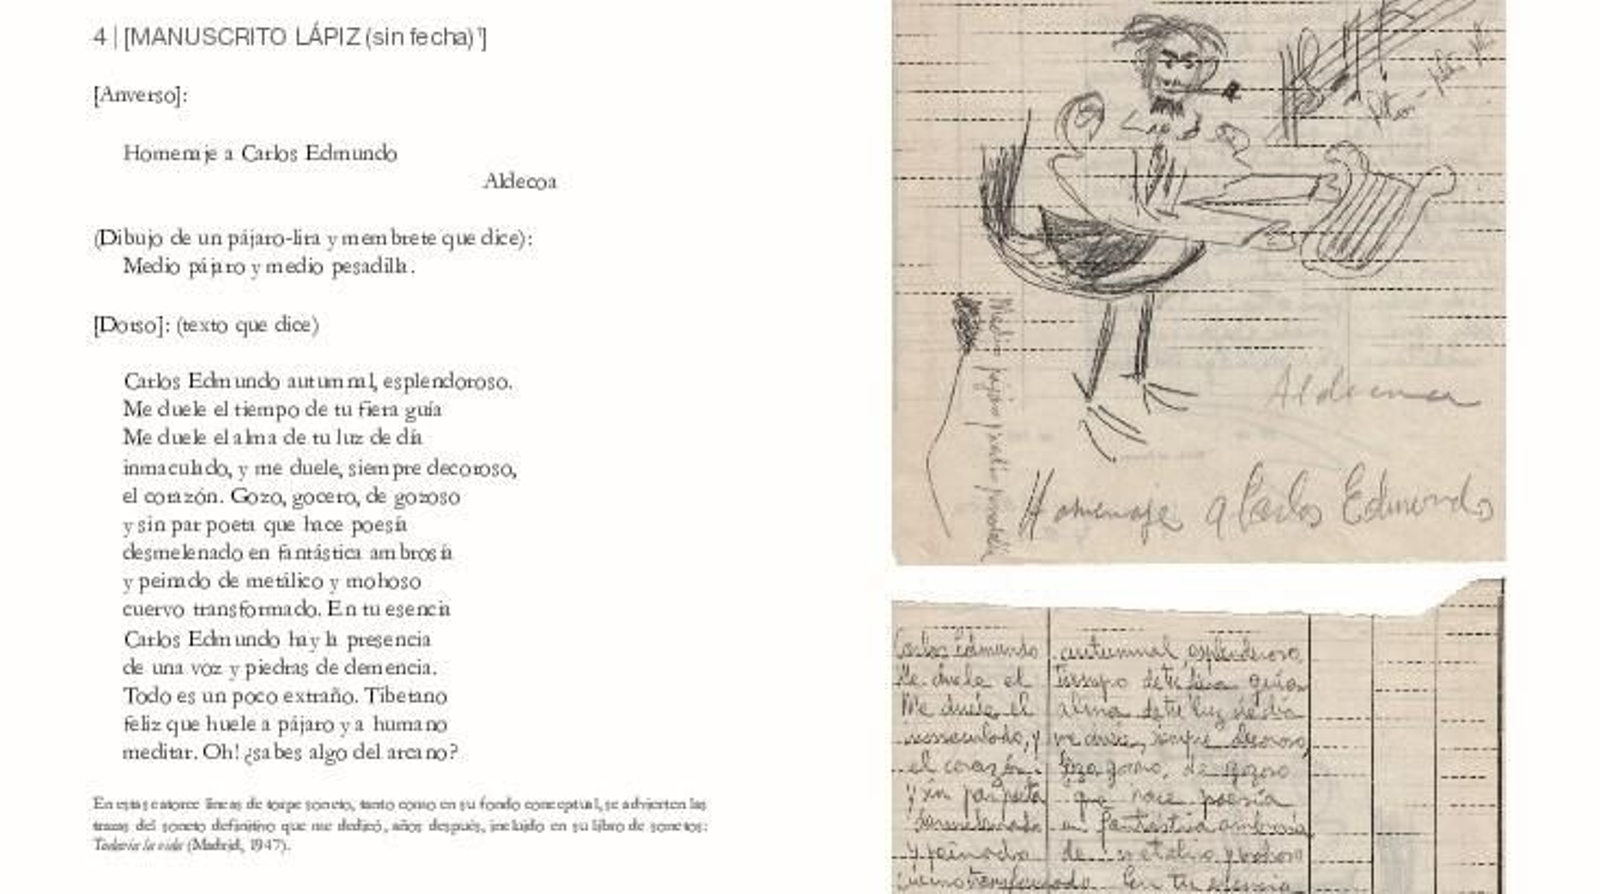 4 | [MANUSCRITO LÁPIZ (sin fecha)¹]
[Anverso]:
Homenaje a Carlos Edmundo
Aldecoa
(Dibujo de un pájaro-lira y membrete que dice):
Medio pájaro y medio pesadilla.
[Dorso]: (texto que dice)
Carlos Edmundo autumnal, esplendoroso.
Me duele el tiempo de tu fiera guía
Me duele el alma de tu luz de día
inmaculado, y me duele, siempre decoroso,
el corazón. Gozo, gocero, de gozoso
y sin par poeta que hace poesía
desmelenado en fantástica ambrosía
y peinado de metálico y mohoso
cuervo transformado. En tu esencia
Carlos Edmundo hay la presencia
de una voz y piedras de demencia.
Todo es un poco extraño. Tibetano
feliz que huele a pájaro y a humano
meditar. Oh! ¿sabes algo del arcano?
En estas catorce líneas de torpe soneto, tanto como en su fondo conceptual, se advierten las
trazas del soneto definitivo que me dedicó, años después, incluido en su libro de sonetos:
Todavía la vida (Madrid, 1947).
Medio pájaro y medio pesadilla
Aldecoa
Homenaje a Carlos Edmundo
Carlos Edmundo autumnal, esplendoroso
Me duele el tiempo de tu fiera guía
Me duele el alma de tu luz de día
inmaculado, y me duele, siempre decoroso,
el corazón. Gozo, de gozoso
y sin par poeta que hace poesía
desmelenado en fantástica ambrosía
y peinado de metálico y mohoso
cuervo transformado. En tu esencia